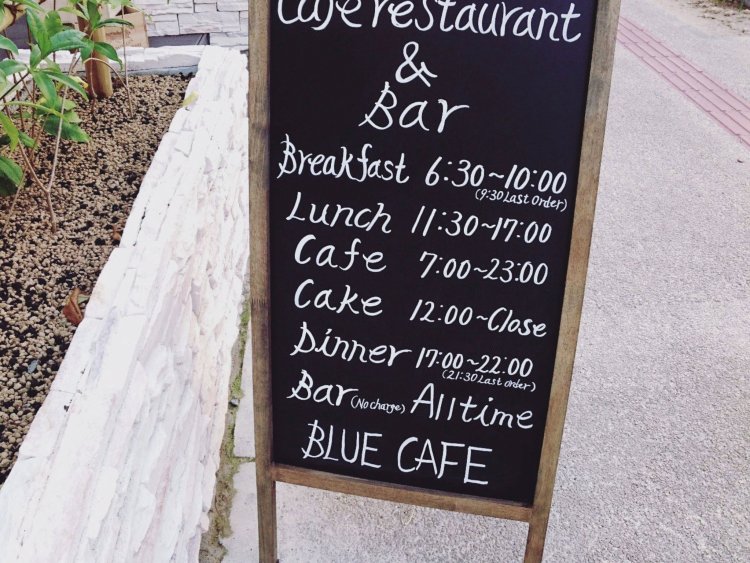 Cafe restaurant
&
Bar
Breakfast 6:30~10:00
(9:30 Last Order)
Lunch 11:30~17:00
Cafe 7:00~23:00
Cake 12:00~Close
Dinner 17:00~22:00
(21:30 Last order)
Bar (No charge) All time
BLUE CAFE